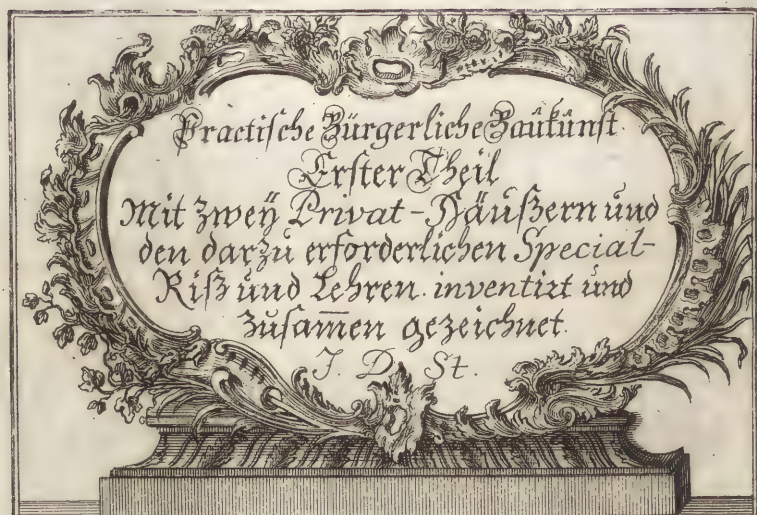 Practische Bürgerliche Baukunst.
Erster Theil
Mit zweÿ Privat-Häußern und
den darzu erforderlichen Special-
Riß und Lehren. inventirt und
zusam̅en gezeichnet.
J. D. St.